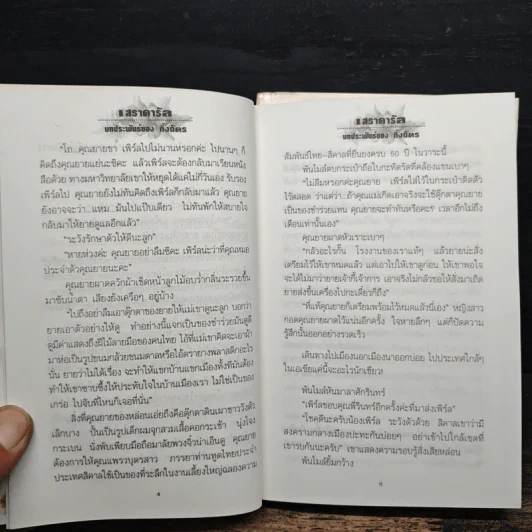 เสราดารัล
บทประพันธ์ของ กิ่งฉัตร
"โถ...คุณยายขา เพิร์ลไปไม่นานหรอกค่ะ ไปนานๆ ก็
คิดถึงคุณยายแย่นะซิคะ แล้วเพิร์ลจะต้องกลับมาเรียนหนัง
สือด้วย ทางมหาวิทยาลัยเขาให้หยุดได้แค่ไม่กี่วันเอง รับรอง
เพิร์ลไป คุณยายยังไม่ทันคิดถึงเพิร์ลก็กลับมาแล้ว คุณยาย
ยังอาจจะว่า...แหม...มันไปแป๊บเดียว ไม่ทันพักให้สบายใจ
กลับมาให้ยายดูแลอีกแล้ว"
"ระวังรักษาตัวให้ดีนะลูก"
"หายห่วงค่ะ คุณยายอย่าลืมซิคะ เพิร์ลน่ะว่าที่คุณหมอ
ประจำตัวคุณยายนะคะ"
คุณยายผาดควักผ้าเช็ดหน้าลูกไม้อบร่ำกลิ่นระรวยขึ้น
มาซับน้ำตา เสียงยังเครือๆ อยู่บ้าง
"ไปถึงอย่าลืมเอาตุ๊กตาของยายให้แม่เขาดูนะลูก บอกว่า
ยายเอาตัวอย่างให้ดู ทำอย่างนี้แจกเป็นของชำร่วยมันดูดี
ดูมีค่าแสดงถึงฝีไม้ลายมือของคนไทย ไอ้ที่แม่เขาคิดจะเอาผ้า
มาห่อเป็นรูปขนมกล้วยขนมตาลหรือไอ้ตรายางพลาสติกอะไร
นั่น ยายว่าไม่ได้เรื่อง จะทำให้แขกบ้านแขกเมืองทั้งทีมันต้อง
ทำให้เขาซาบซึ้งให้ประทับใจในบ้านเมืองเรา ไม่ใช่เป็นของ
เกร่อ ไปจับที่ไหนก็เจอที่นั่น"
สิ่งที่คุณยายของหล่อนเอ่ยถึงคือตุ๊กตาดินเผาชาววังตัว
เล็กบาง ปั้นเป็นรูปเด็กผมจุกสวมเสื้อคอกระเช้า นุ่งโจง
กระเบน นั่งพับเพียบมือถือมาลัยพวงจิ๋วน่าเอ็นดู คุณยาย
ต้องการให้คุณแพรวบุตรสาว ภรรยาท่านทูตไทยประจำ
ประเทศลิคาลใช้เป็นของที่ระลึกในงานเลี้ยงใหญ่ฉลองความ
เสราดารัล
บทประพันธ์ของ กิ่งฉัตร
สัมพันธ์ไทย-ลิคาลที่ยืนยงครบ 50 ปี ในวาระนี้
พิมไม้ตบกระเป๋าถือใบกะทัดรัดที่คล้องแขนเบาๆ
"ไม่ลืมหรอกค่ะคุณยาย เพิร์ลใส่ไว้ในกระเป๋าติดตัว
ไว้ตลอด ว่าแต่ว่า...ถ้าคุณแม่เกิดเอาจริงจะใช้ตุ๊กตาคุณยาย
เป็นของชำร่วยแทน คุณยายจะทำทันหรือคะ เวลาอีกไม่ถึง
เดือนเท่านั้นเอง"
คุณยายผาดหัวเราะเบาๆ
"กลัวอะไรกัน โรงงานของเราแท้ๆ แล้วยายน่ะสั่ง
เตรียมไว้ให้เขาหมดแล้ว แต่เอาไปให้เขาดูก่อน ให้เขาพอใจ
จะได้ไม่มาว่ายายเจ้ากี้เจ้าการ เอาจริงไม่กลัวขอให้สั่งมาเถิด
ยายส่งขึ้นเครื่องไปกะเดี๋ยวก็ถึง"
"ที่แท้คุณยายก็เตรียมพร้อมไว้หมดแล้วนี่เอง" หญิงสาว
กอดคุณยายผาดไว้แน่นอีกครั้ง ใจหายลึกๆ แต่ก็ปัดความ
รู้สึกนั้นออกอย่างรวดเร็ว
เดินทางไปเมืองนอกเมืองนาออกบ่อย ไปประเทศใกล้ๆ
ในเอเชียแค่นี้จะอะไรนักเชียว!
พิมไม้หันมาลาศักรินทร์
"เพิร์ลขอบคุณพี่รินทร์อีกครั้งค่ะที่มาส่งเพิร์ล"
"โชคดีนะครับน้องเพิร์ล ระวังตัวด้วย ลิคาลเขาว่ามี
สงครามกลางเมืองปะทะกันบ่อยๆ อย่าเข้าไปใกล้เขตที่
เขารบกันนะครับ" เขาแสดงความรอบรู้สั่งเสียหล่อน
พิมไม้ยิ้มกว้าง